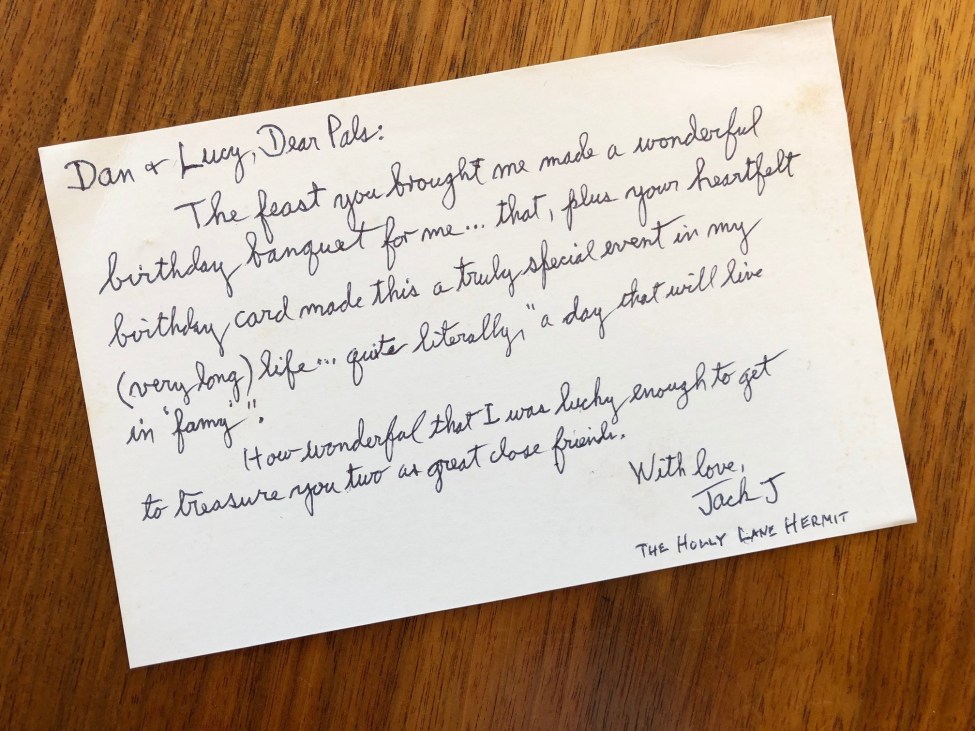 Dan + Lucy, Dear Pals:
The feast you brought me made a wonderful
birthday banquet for me... that, plus your heartfelt
birthday card made this a truly special event in my
(very long) life... quite literally, "a day that will live
in 'famy'".
How wonderful that I was lucky enough to get
to treasure you two as great close friends.
With love,
Jack J
THE HOLLY LANE HERMIT